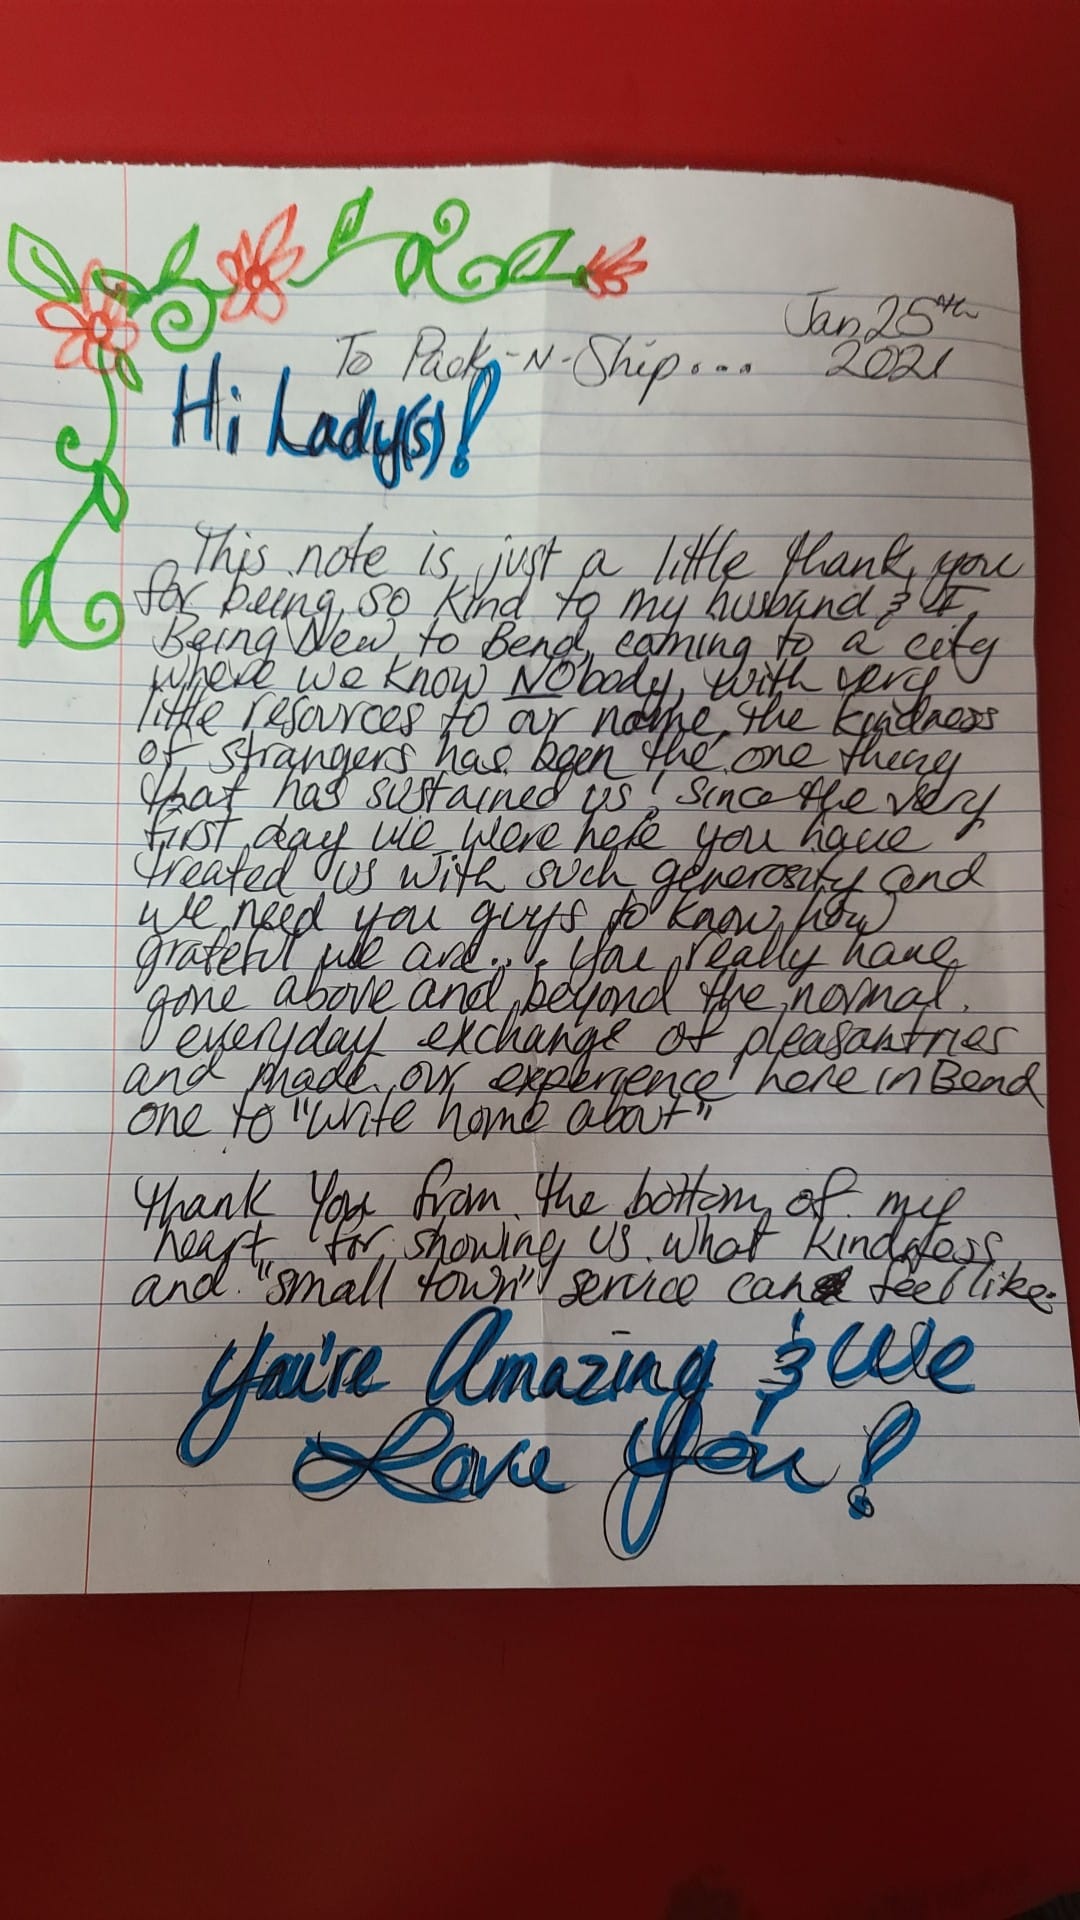 Jan 25th
To Pack-N-Ship... 2021
Hi Lady(s)!
This note is just a little thank you
for being so kind to my husband & I.
Being New to Bend, coming to a city
where we know NObody, with very
little resources to our name, the kindness
of strangers has been the one thing
that has sustained us! Since the very
first day we were here you have
treated us with such generosity and
we need you guys to know how
grateful we are... You really have
gone above and beyond the normal
everyday exchange of pleasantries
and made our experience here in Bend
one to "write home about"
Thank You from the bottom of my
heart for showing us what kindness
and "small town" service can feel like.
You're Amazing & We
Love You!